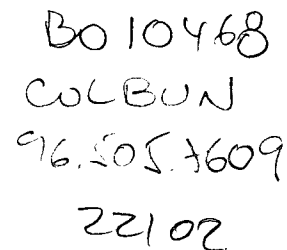 BO10468
COLBUN
96.505.7609
22/02